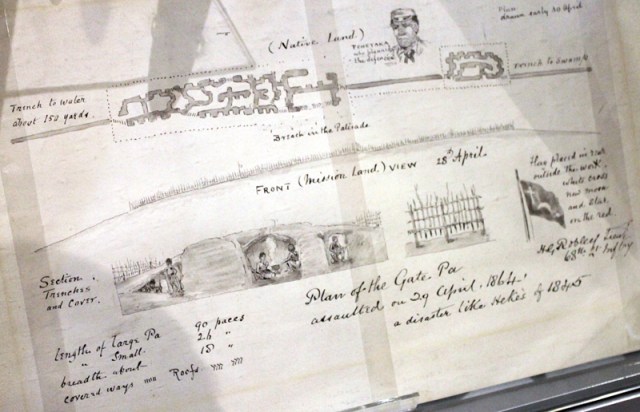 Plan
drawn early 30 April
(Native Land)
who planned
the defences
Trench to Swamp
Trench to water
about 150 yards.
Breach in the Palisade
FRONT (Mission Land) VIEW 28th April.
Flag placed in rear
outside the work.
White cross
new moon
and star,
on the red.
H.G. Robley, Lieut
68th Lt Infty
Section.
Trenches
and Cover.
Plan of the Gate Pa
assaulted on 29 April, 1864.
a disaster like Heke's of 1845
Length of Large Pa 90 paces
" Small 26 "
breadth about 18 "
covered ways Roofs